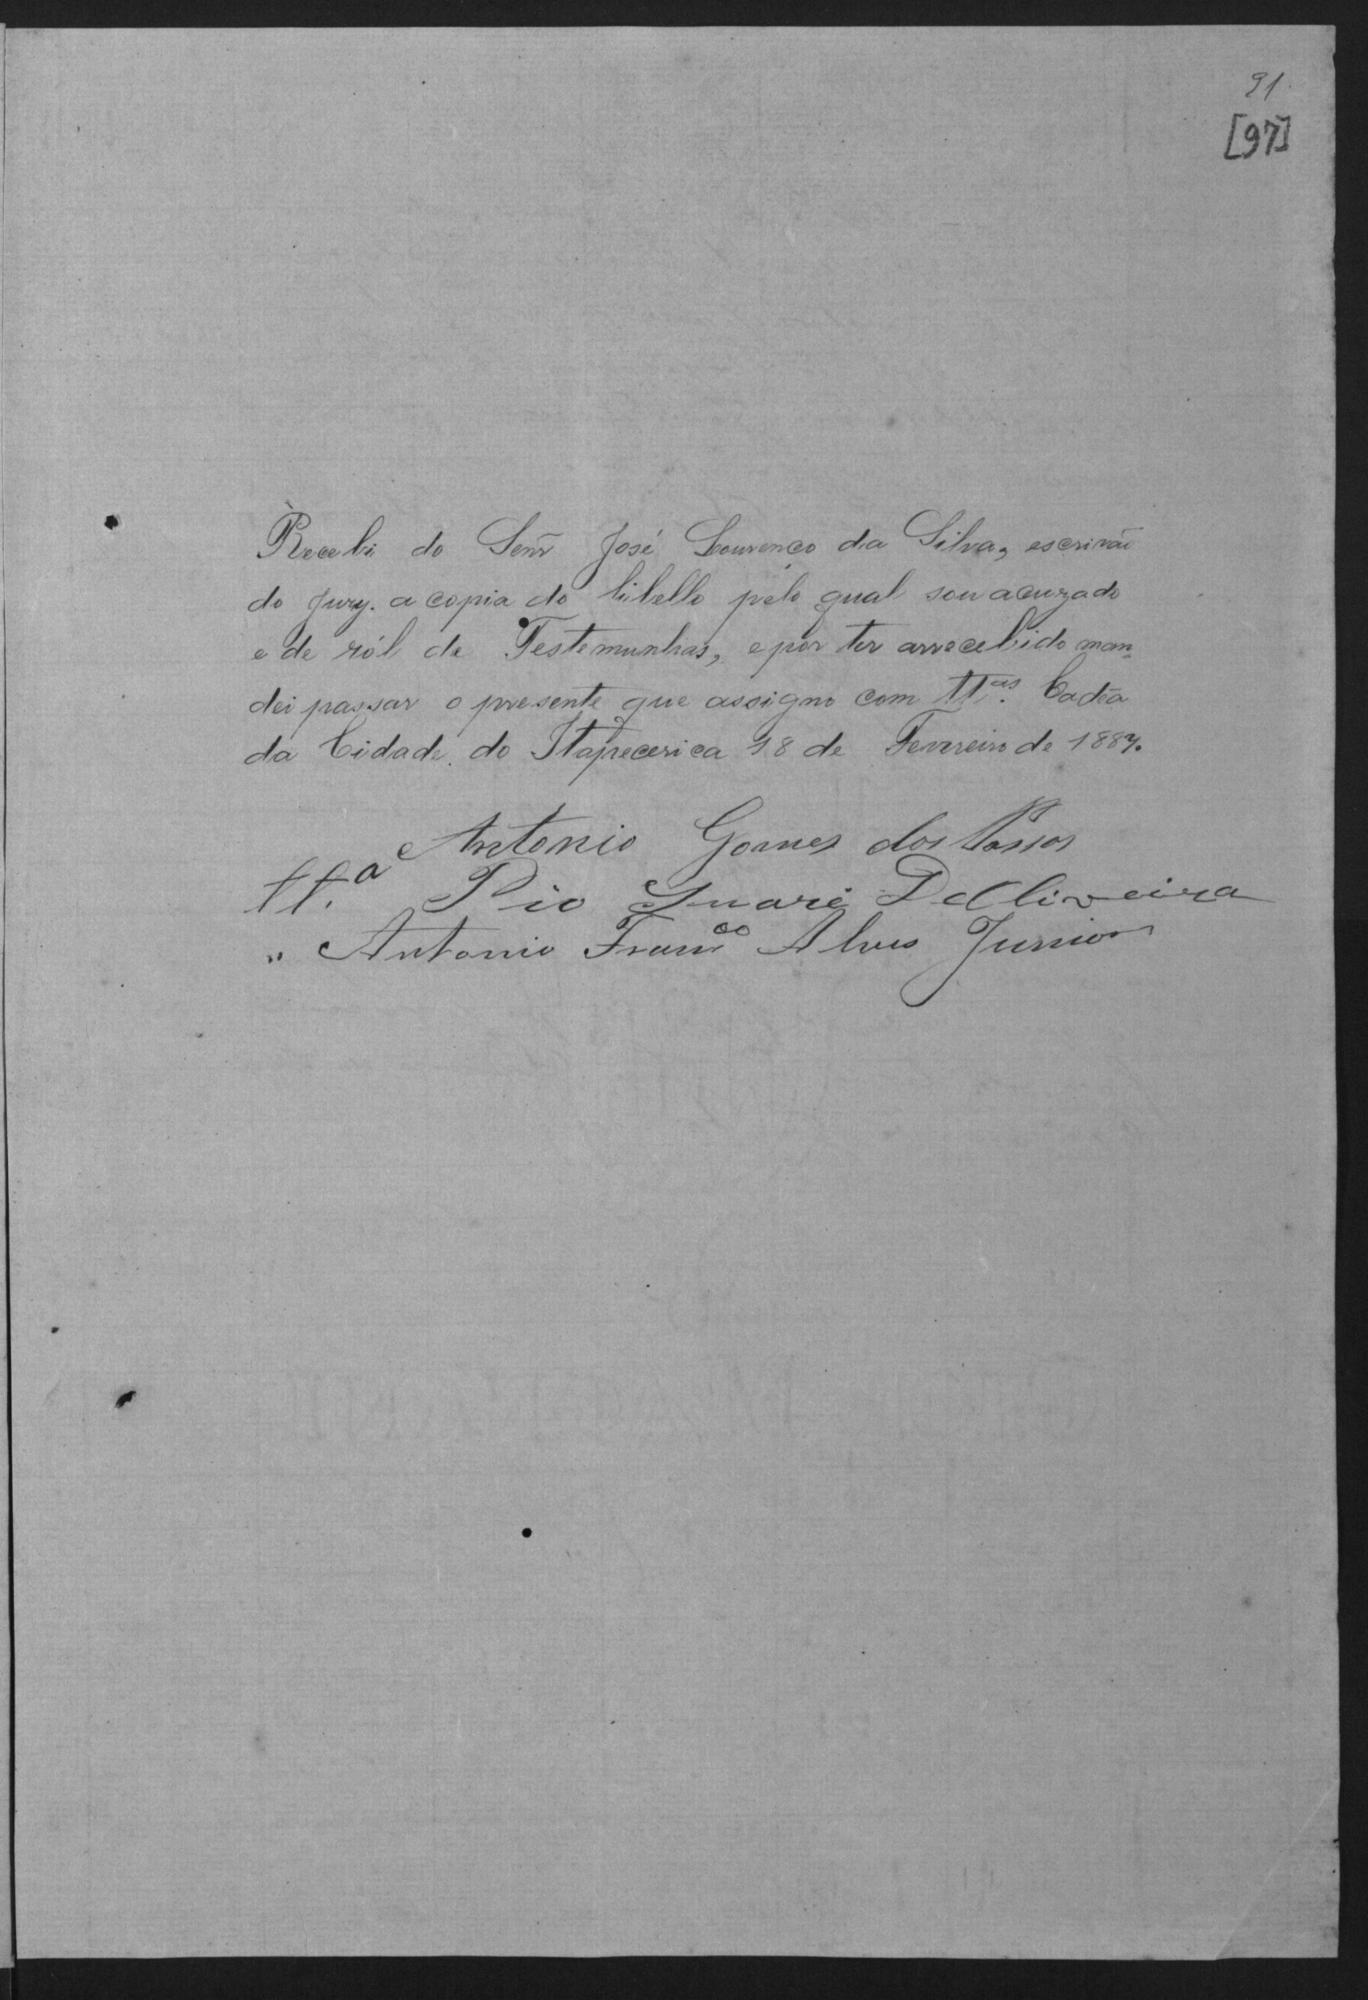 91
[97]
Recebi do Senr José Lourenço da Silva, escrivão
do Jury. a copia do libello pelo qual sou acuzado
e de ról de Testemunhas, e por ter arrecebido man-
dei passar o presente que assigno com ttas. Cadêa
da Cidade. do Itapecerica 18 de Fevereiro de 1887.
Antonio Gomes dos Passos
tt.a Pio Deoliveira
" Antonio Franco Alves Junior